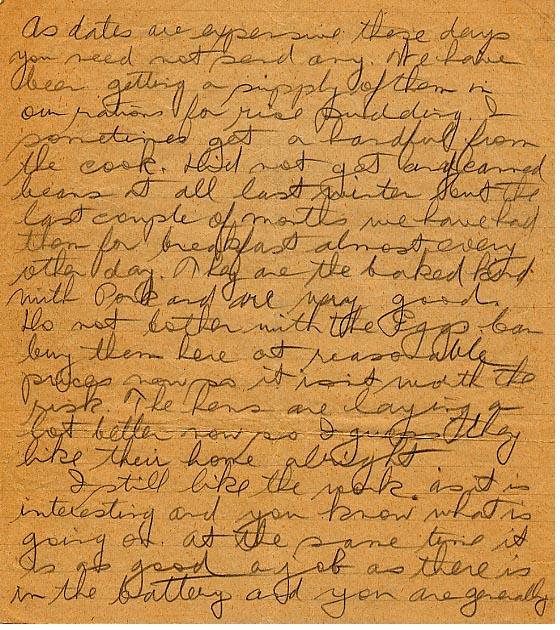 As dates are expensive these days
you need not send any. We have
been getting a supply of them in
our rations for rice pudding. I
sometimes get a handful from
the cook. Did not get any canned
beans at all last winter but the
last couple of months we have had
them for breakfast almost every
other day. They are the baked kind
with Pork and are very good.
Do not bother with the Eggs can
buy them here at reasonable
prices now so it isnt worth the
risk. The hens are laying a
lot better now so I guess they
like their home alright
I still like the work as it is
interesting and you know what is
going on. At the same time it
is as good a job as there is
in the battery and you are generally